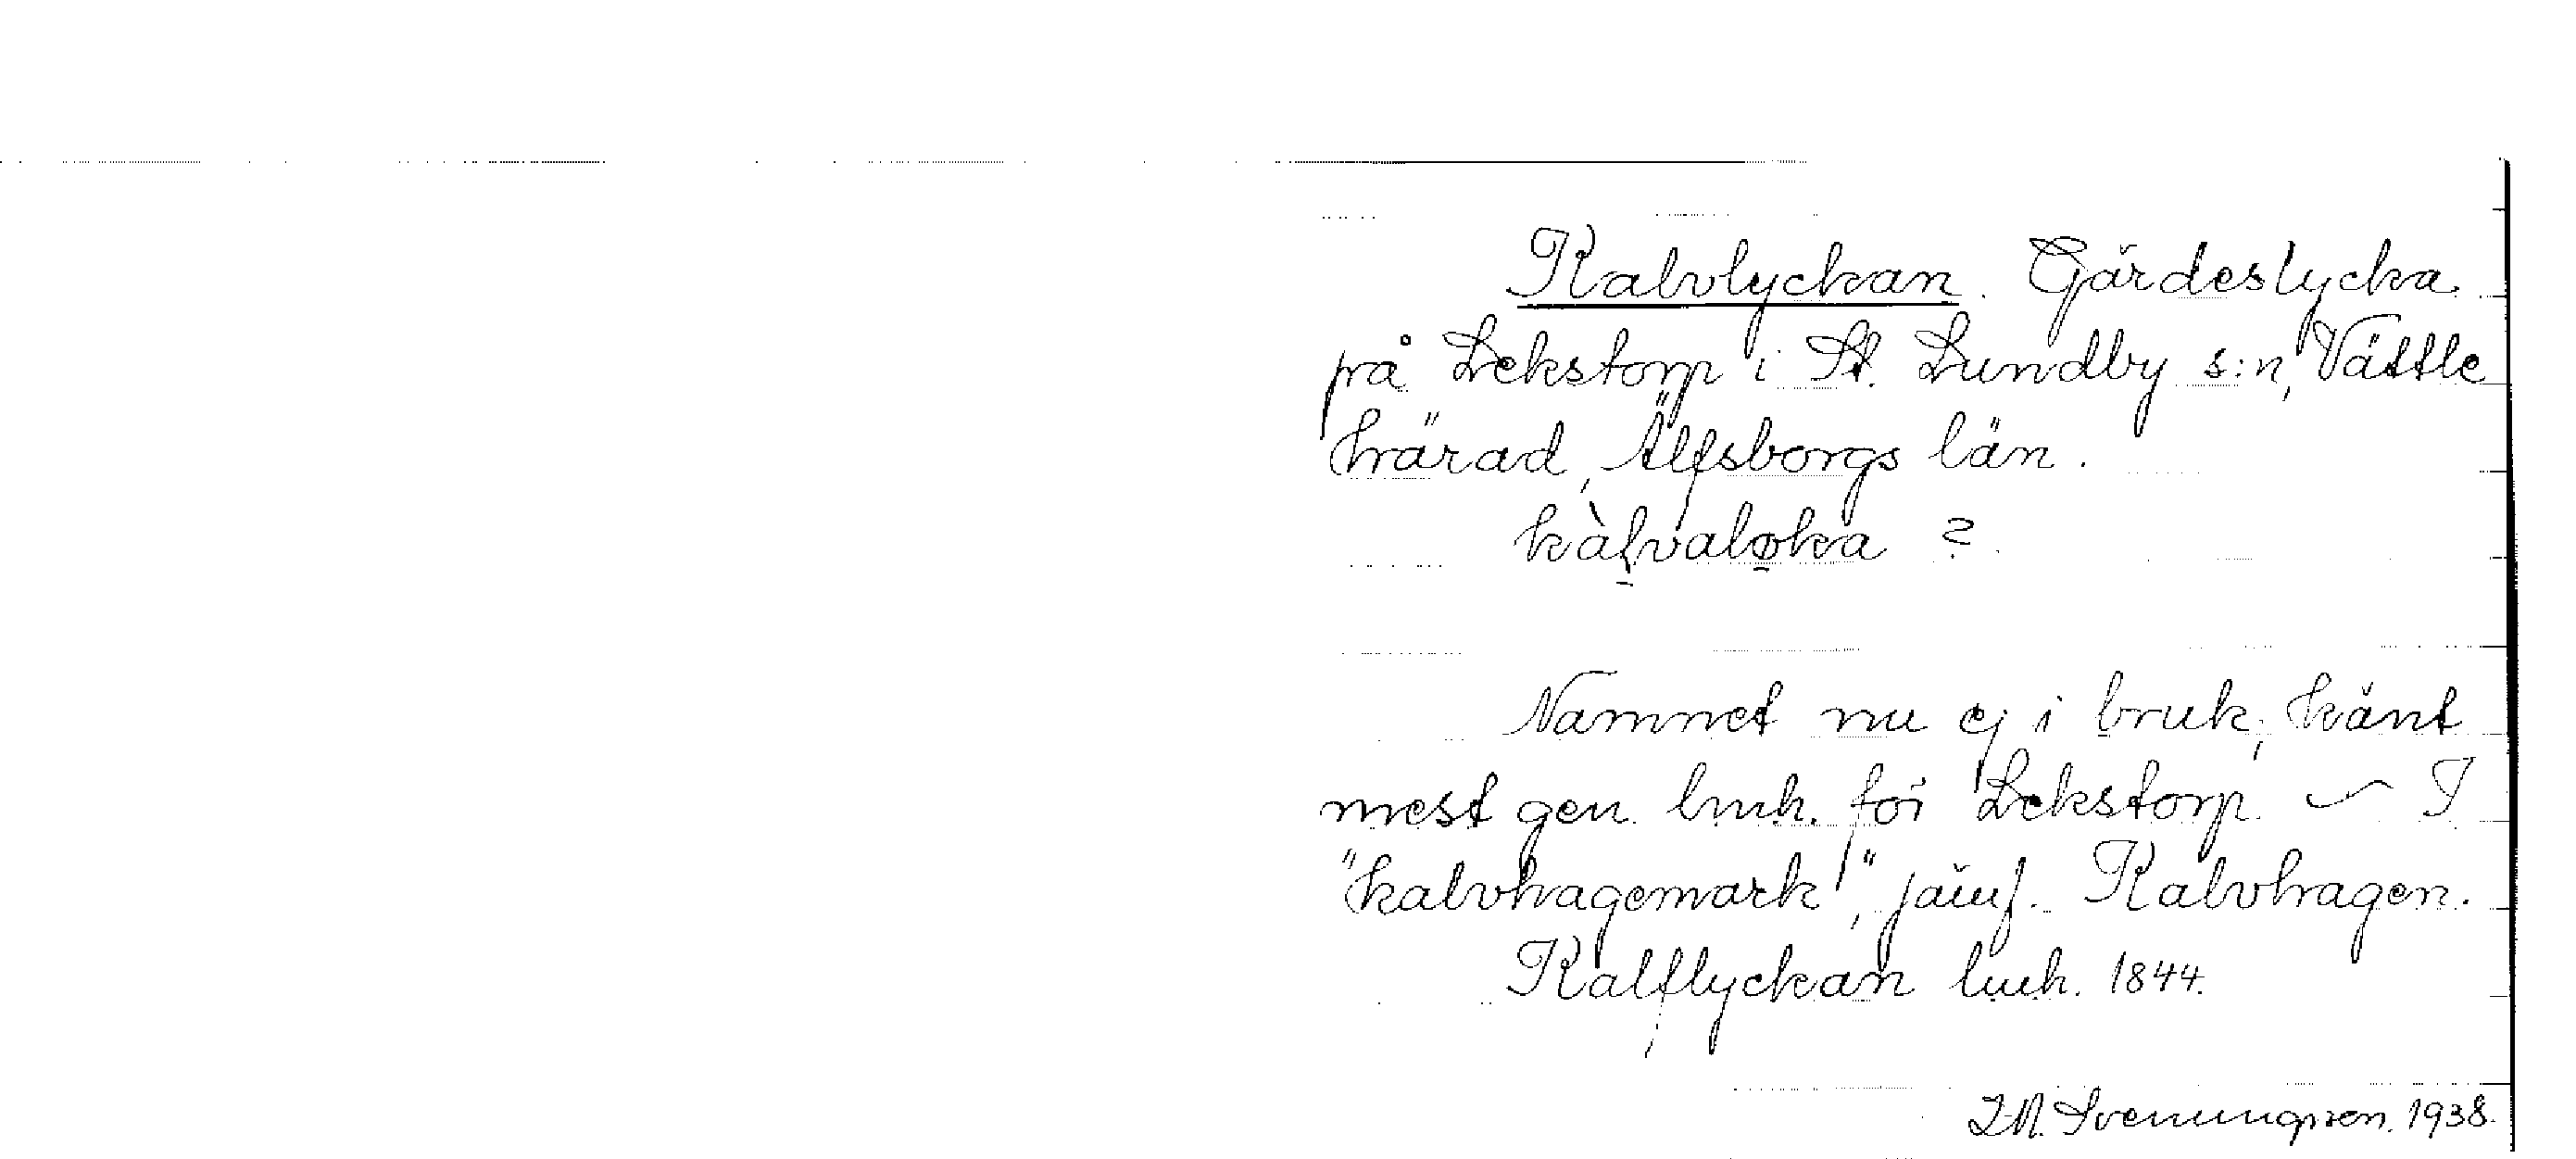 Kalvlyckan. Gärdeslycka
på Lekstorp i St. Lundby s:n, Vättle
härad, Älfsborgs län.
kàlvaløka ?
Namnet nu ej i bruk; känt
mest gen. lmh. för Lekstorp. ~ I
"kalvhagemark", jämf. Kalvhagen.
Kalflyckan lmh. 1844.
Svenungsson. 1938.